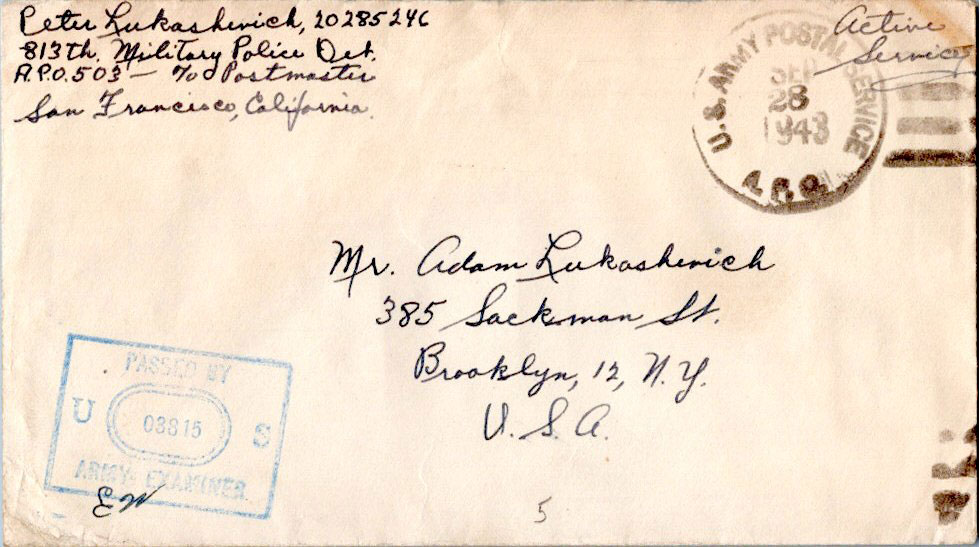 Peter Lukashevich, 20285246
813th. Military Police Det.
A.P.O. 503 — c/o Postmaster
San Francisco, California.
Active
Service
U.S. ARMY POSTAL SERVICE
SEP
28
1943
A.P.O.
Mr. Adam Lukashevich
385 Sackman St.
Brooklyn, 12, N.Y.
U.S.A.
PASSED BY
U 03815 S
ARMY EXAMINER
EW
5